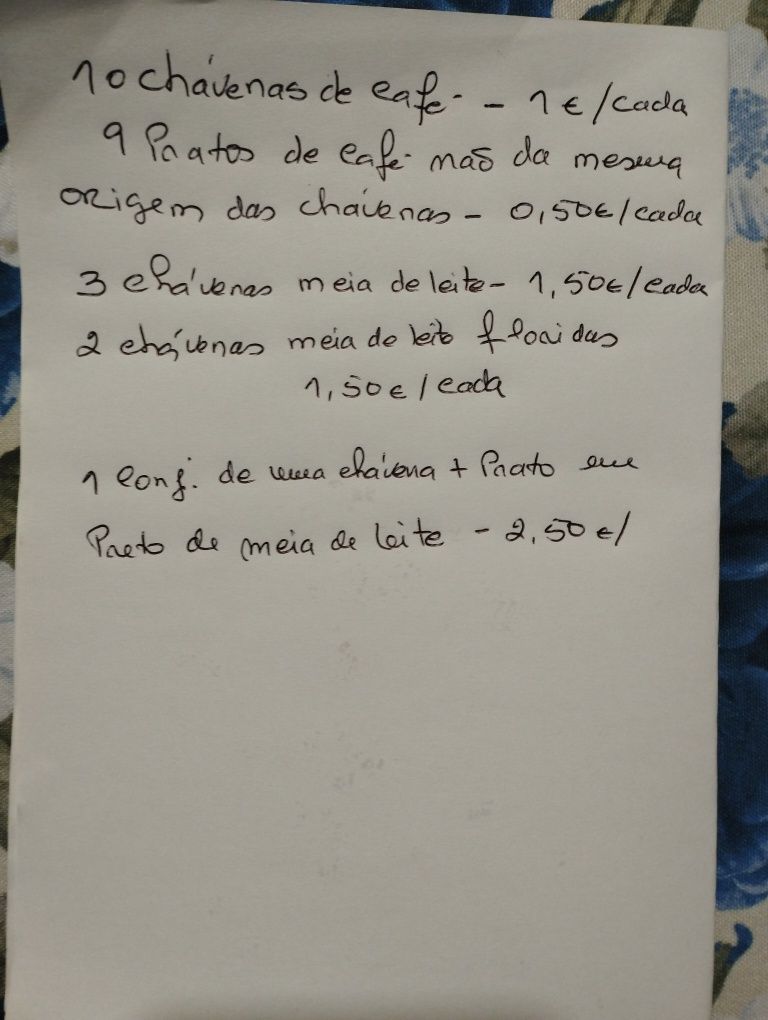 10 chávenas de café - 1 € / cada
9 Pratos de café não da mesma
origem das chávenas - 0,50€ / cada
3 chávenas meia de leite - 1,50€ / cada
2 chávenas meia de leite floridas
1,50€ / cada
1 conj. de uma chávena + Prato em
Preto de meia de leite - 2,50 € /